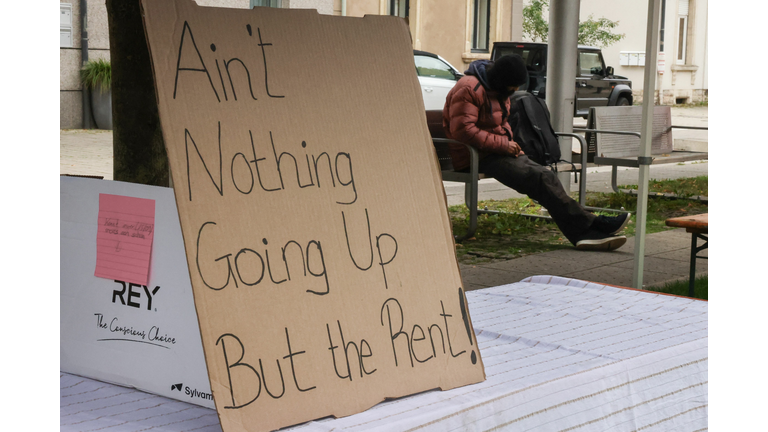 Ain't
Nothing
Going Up
But the Rent!
REY
The Conscious Choice
Sylvam